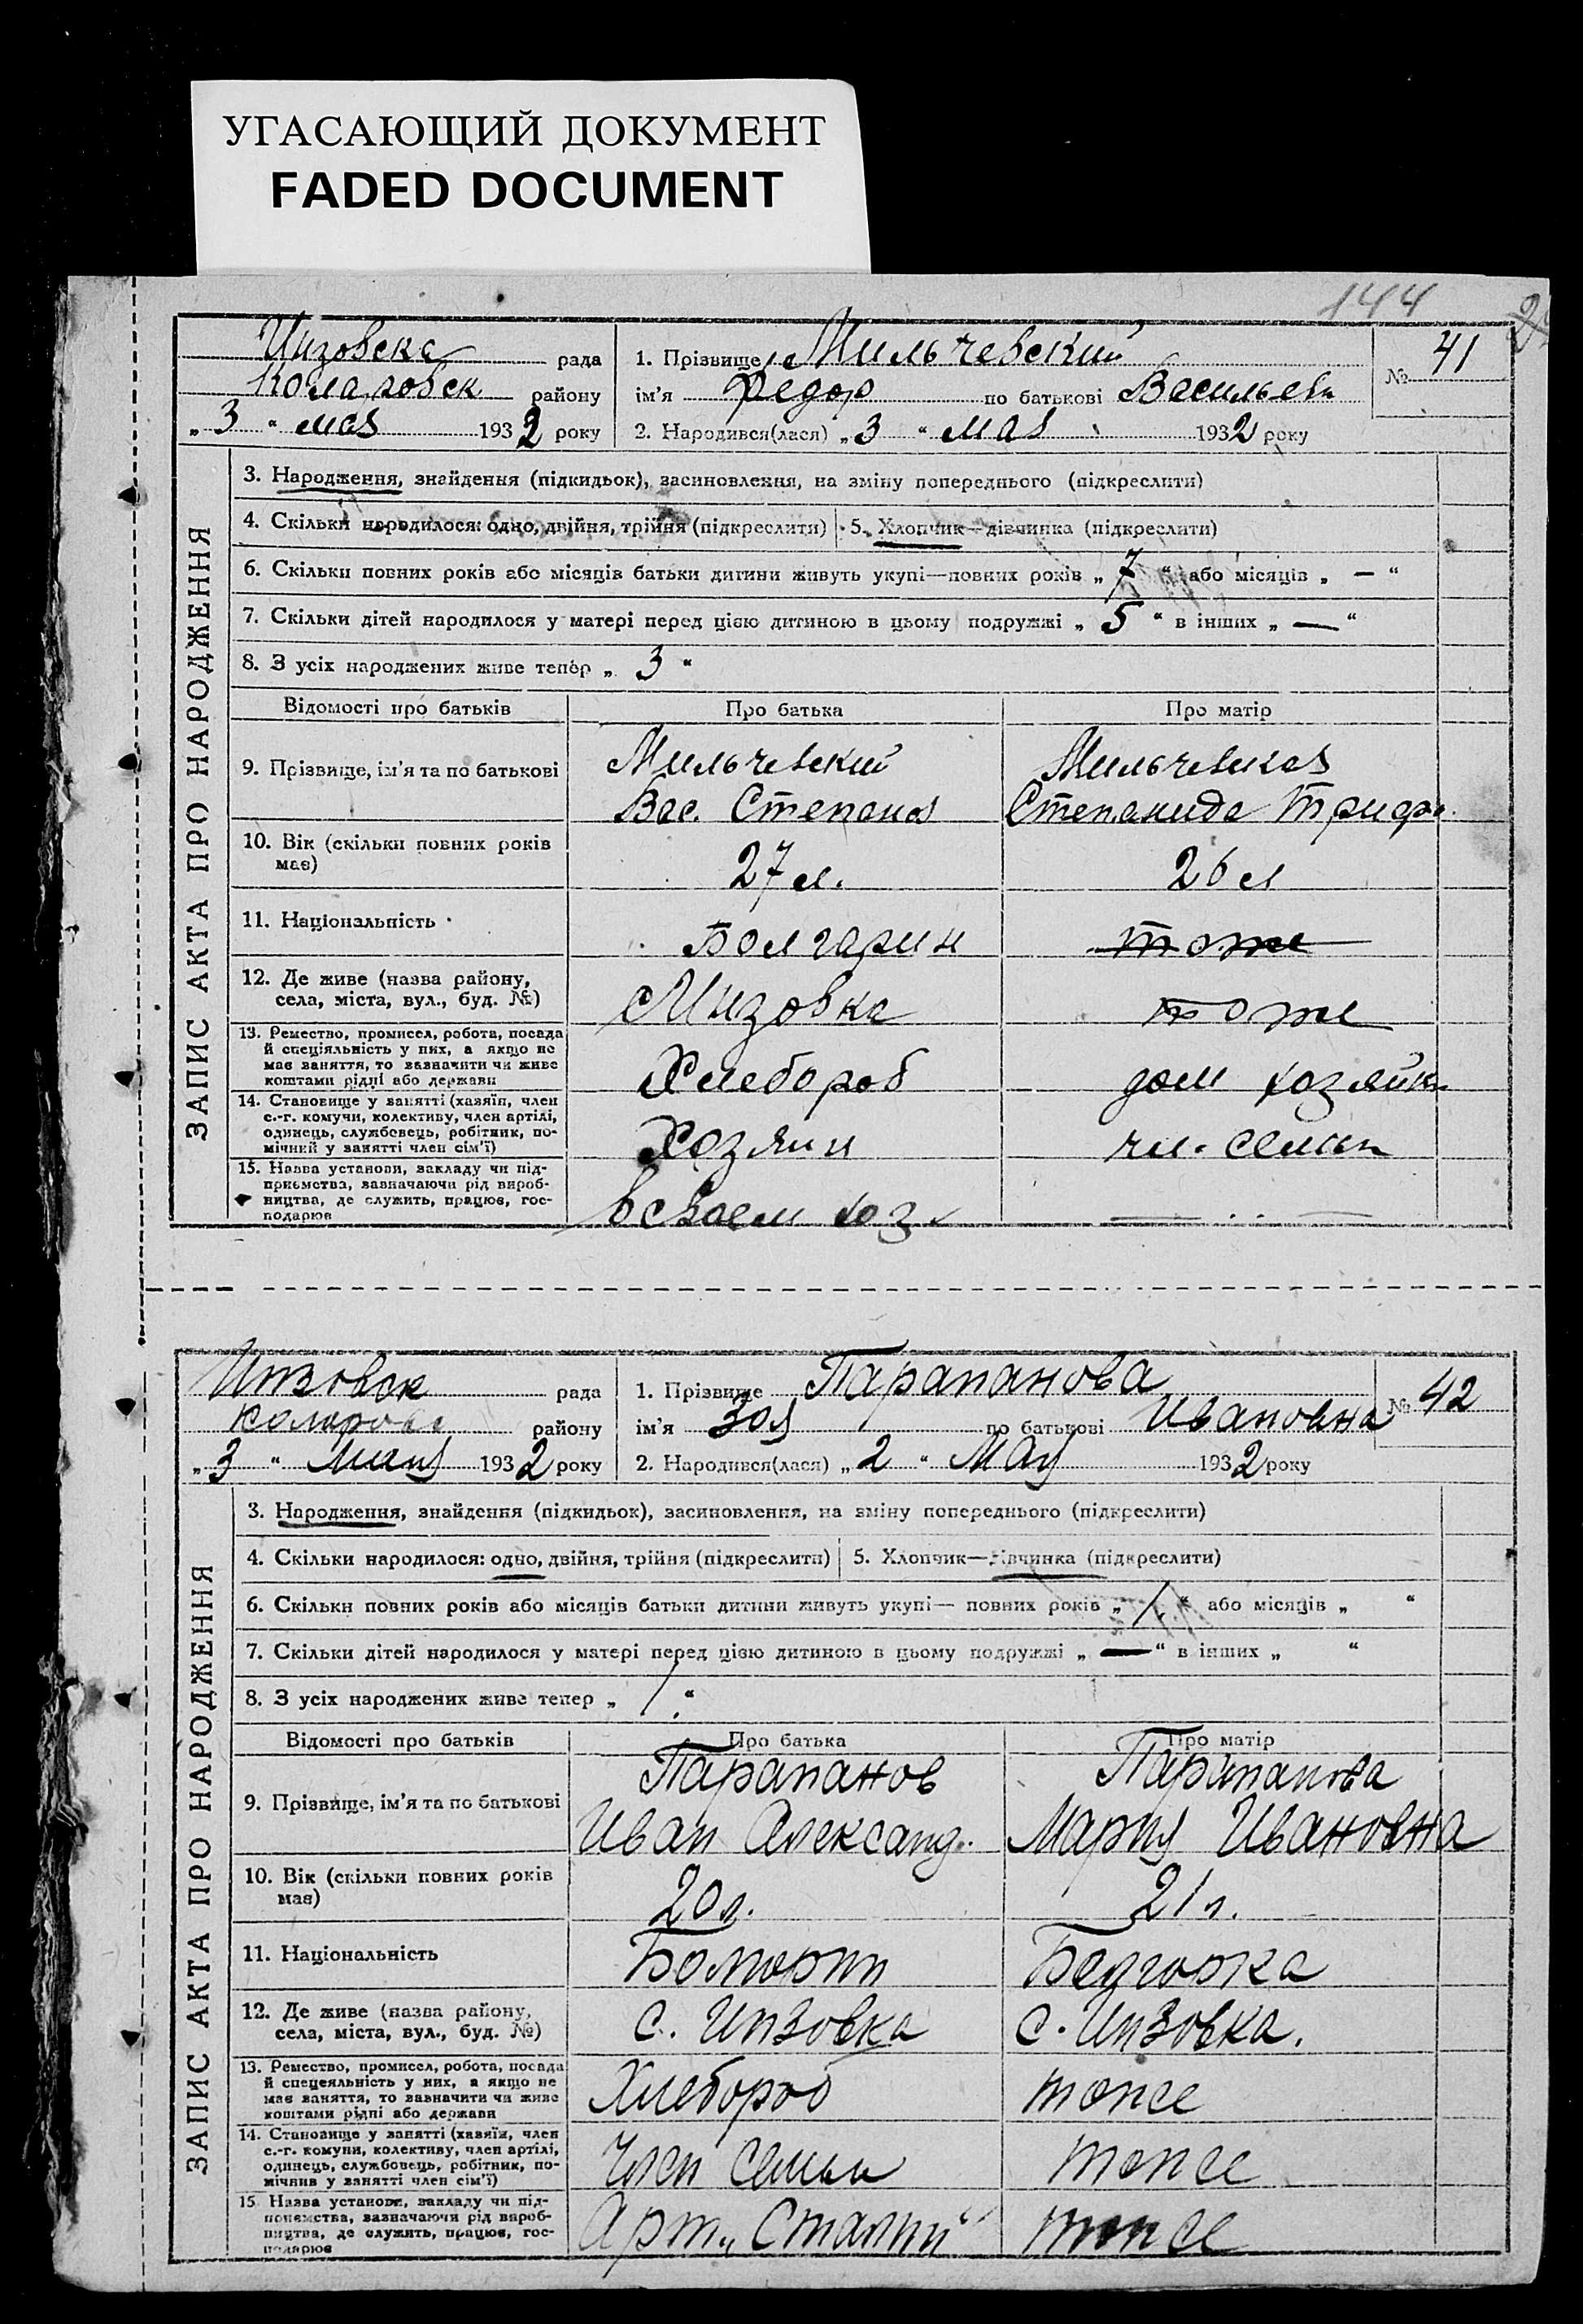 УГАСАЮЩИЙ ДОКУМЕНТ
FADED DOCUMENT
144
Инзовска рада
Коларовск району
„ 3 “ мая 1932 року
1. Прізвище Мильчевский
ім'я Федор по батькові Васильев
2. Народився(лася) „ 3 “ мая 1932 року
№ 41
ЗАПИС АКТА ПРО НАРОДЖЕННЯ
3. Народження, знайдення (підкидьок), засиновлення, на зміну попереднього (підкреслити)
4. Скільки народилося: одно, двійня, трійня (підкреслити) 5. Хлопчик—дівчинка (підкреслити)
6. Скільки повних років або місяців батьки дитини живуть укупі—повних років „ 7 “ або місяців „ — “
7. Скільки дітей народилося у матері перед цією дитиною в цьому подружжі „ 5 “ в інших „ — “
8. З усіх народжених живе тепер „ 3 “
Відомості про батьків Про батька Про матір
9. Прізвище, ім'я та по батькові Мильчевский Мильчевская
Вас. Степанов Степанида Трифо.
10. Вік (скільки повних років
має) 27 л. 26 л
11. Національність Болгарин тоже
12. Де живе (назва району,
села, міста, вул., буд. №) Инзовка тоже
13. Ремество, промисел, робота, посада
й спеціяльність у них, а якщо не
має заняття, то зазначити чи живе
коштами рідні або держави Хлебороб дом хозяйк
14. Становище у занятті (хазяїн, член
с.-г. комуни, колективу, член артілі,
одинець, службовець, робітник, по-
мічний у занятті член сім'ї) Хозяин чл. семьи
15. Назва установи, закладу чи під-
приємства, зазначаючи рід вироб-
ництва, де служить, працює, гос-
подарює в своем хоз
Инзовск рада
Коларовс району
„ 3 “ Мая 1932 року
1. Прізвище Парапанова
ім'я Зоя по батькові Ивановна
2. Народився(лася) „ 2 “ Мая 1932 року
№ 42
ЗАПИС АКТА ПРО НАРОДЖЕННЯ
3. Народження, знайдення (підкидьок), засиновлення, на зміну попереднього (підкреслити)
4. Скільки народилося: одно, двійня, трійня (підкреслити) 5. Хлопчик—дівчинка (підкреслити)
6. Скільки повних років або місяців батьки дитини живуть укупі— повних років „ 1. “ або місяців „ “
7. Скільки дітей народилося у матері перед цією дитиною в цьому подружжі „ — “ в інших „ “
8. З усіх народжених живе тепер „ 1. “
Відомості про батьків Про батька Про матір
9. Прізвище, ім'я та по батькові Парапанов Парапанова
Иван Александ. Мария Ивановна
10. Вік (скільки повних років
має) 20 л. 21 л.
11. Національність Болгарин Болгарка
12. Де живе (назва району,
села, міста, вул., буд. №) с. Инзовка с. Инзовка.
13. Ремество, промисел, робота, посада
й спецеяльність у них, а якщо не
має заняття, то зазначити чи живе
коштами рідні або держави Хлебороб тоже
14. Становище у занятті (хазяїн, член
с.-г. комуни, колективу, член артілі,
одинець, службовець, робітник, по-
мічнив у занятті член сім'ї) Член семьи тоже
15 Назва установи, закладу чи під-
приємства, зазначаючи рід вироб-
ництва, де служить, працює, гос-
подарює Арт. „Сталин“ тоже